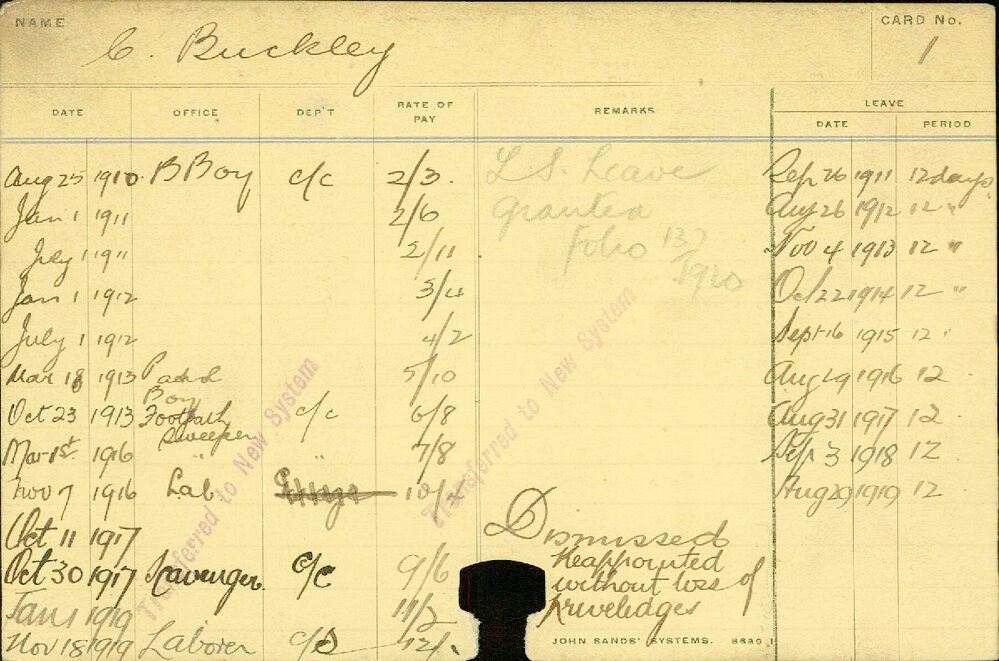 NAME C. Buckley CARD No. 1
DATE OFFICE DEP'T RATE OF PAY REMARKS LEAVE
DATE PERIOD
Aug 25 1910 B Boy c/c 2/3. L.S. Leave Sep 26 1911 12 days
Jan 1 1911 2/6 granted Aug 26 1912 12 "
July 1 1911 2/11 Folio 137 Nov 4 1913 12 "
Jan 1 1912 3/4 1920 Oct 22 1914 12 "
July 1 1912 4/2 Sept 16 1915 12 "
Mar 18 1913 5/10 Aug 19 1916 12
Boy
Oct 23 1913 Footpath c/c 6/8 Aug 31 1917 12
Sweeper
Mar 1st 1916 " " 7/8 Sep 3 1918 12
Nov 7 1916 Lab Aug 29 1919 12
Oct 11 1917 Dismissed
Oct 30 1917 Scavenger c/c 9/6 Reappointed
without loss of
Jan 1 1919 11/2 priveledges
Nov 18 1919 Laborer c/c
Transferred to New System
Transferred to New System
JOHN SANDS' SYSTEMS. 8680